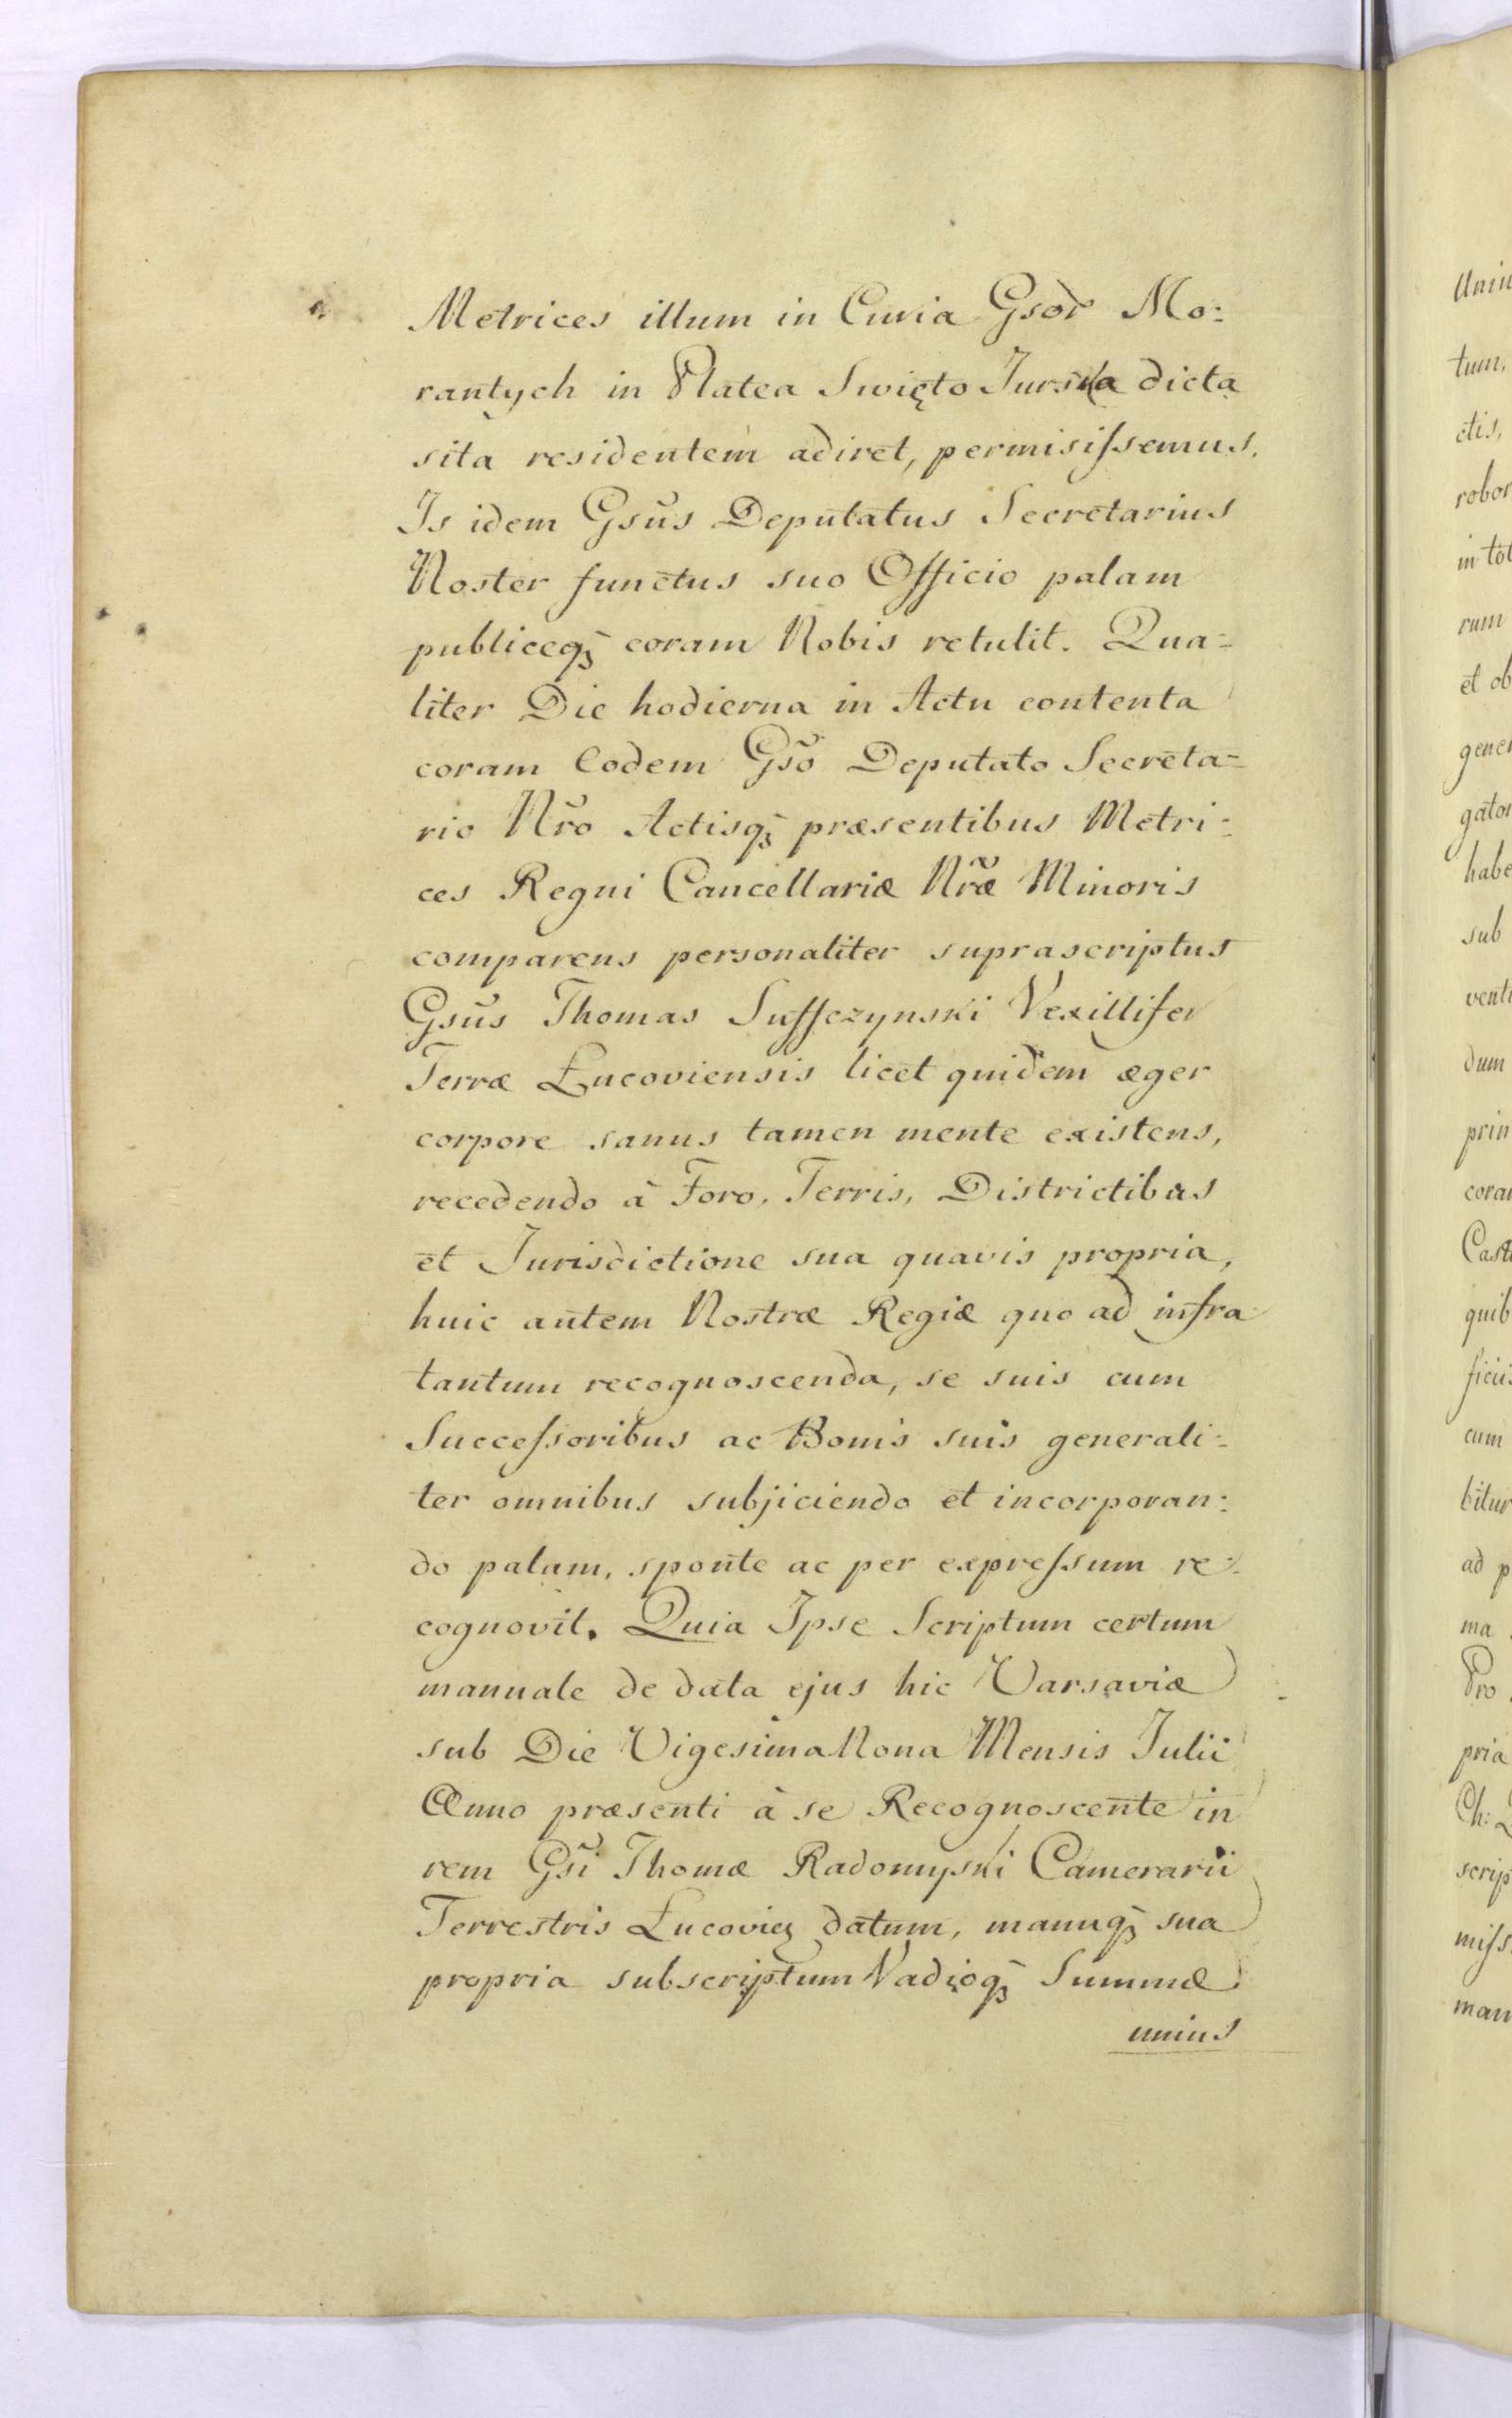 Metrices illum in Curia Gsor̃ Mo:
rantych in Platea Swięto Jurska dicta
sita residentem adiret, permisiſsemus.
Is idem Gsũs Deputatus Secretarius
Noster functus suo Officio palam
publiceqꝫ coram Nobis retulit. Qua=
liter Die hodierna in Actu contenta
coram Eodem Gsõ Deputato Secreta=
rio Nr̃o Actisqꝫ præsentibus Metri:
ces Regni Cancellariæ Nr̃æ Minoris
comparens personaliter suprascriptus
Gsũs Thomas Suffczynski Vexillifer
Terræ Łucoviensis licet quidem æger
corpore sanus tamen mente existens,
recedendo à Foro, Terris, Districtibus
et Jurisdictione sua quavis propria,
huic autem Nostræ Regiæ quo ad infra
tantum recognoscenda, se suis cum
Succeſsoribus ac Bonis suis generali:
ter omnibus subjiciendo et incorporan:
do palam, sponte ac per expreſsum re:
cognovit. Quia Ipse Scriptum certum
manuale de data ejus hic Varsaviæ
sub Die Vigesima Nona Mensis Julii
Anno præsenti à se Recognoscente in
rem Gsĩ Thomæ Radomyski Camerarii
Terrestris Łucovieꝫ datum, manuqꝫ sua
propria subscriptum Vadioqꝫ Summæ
unius